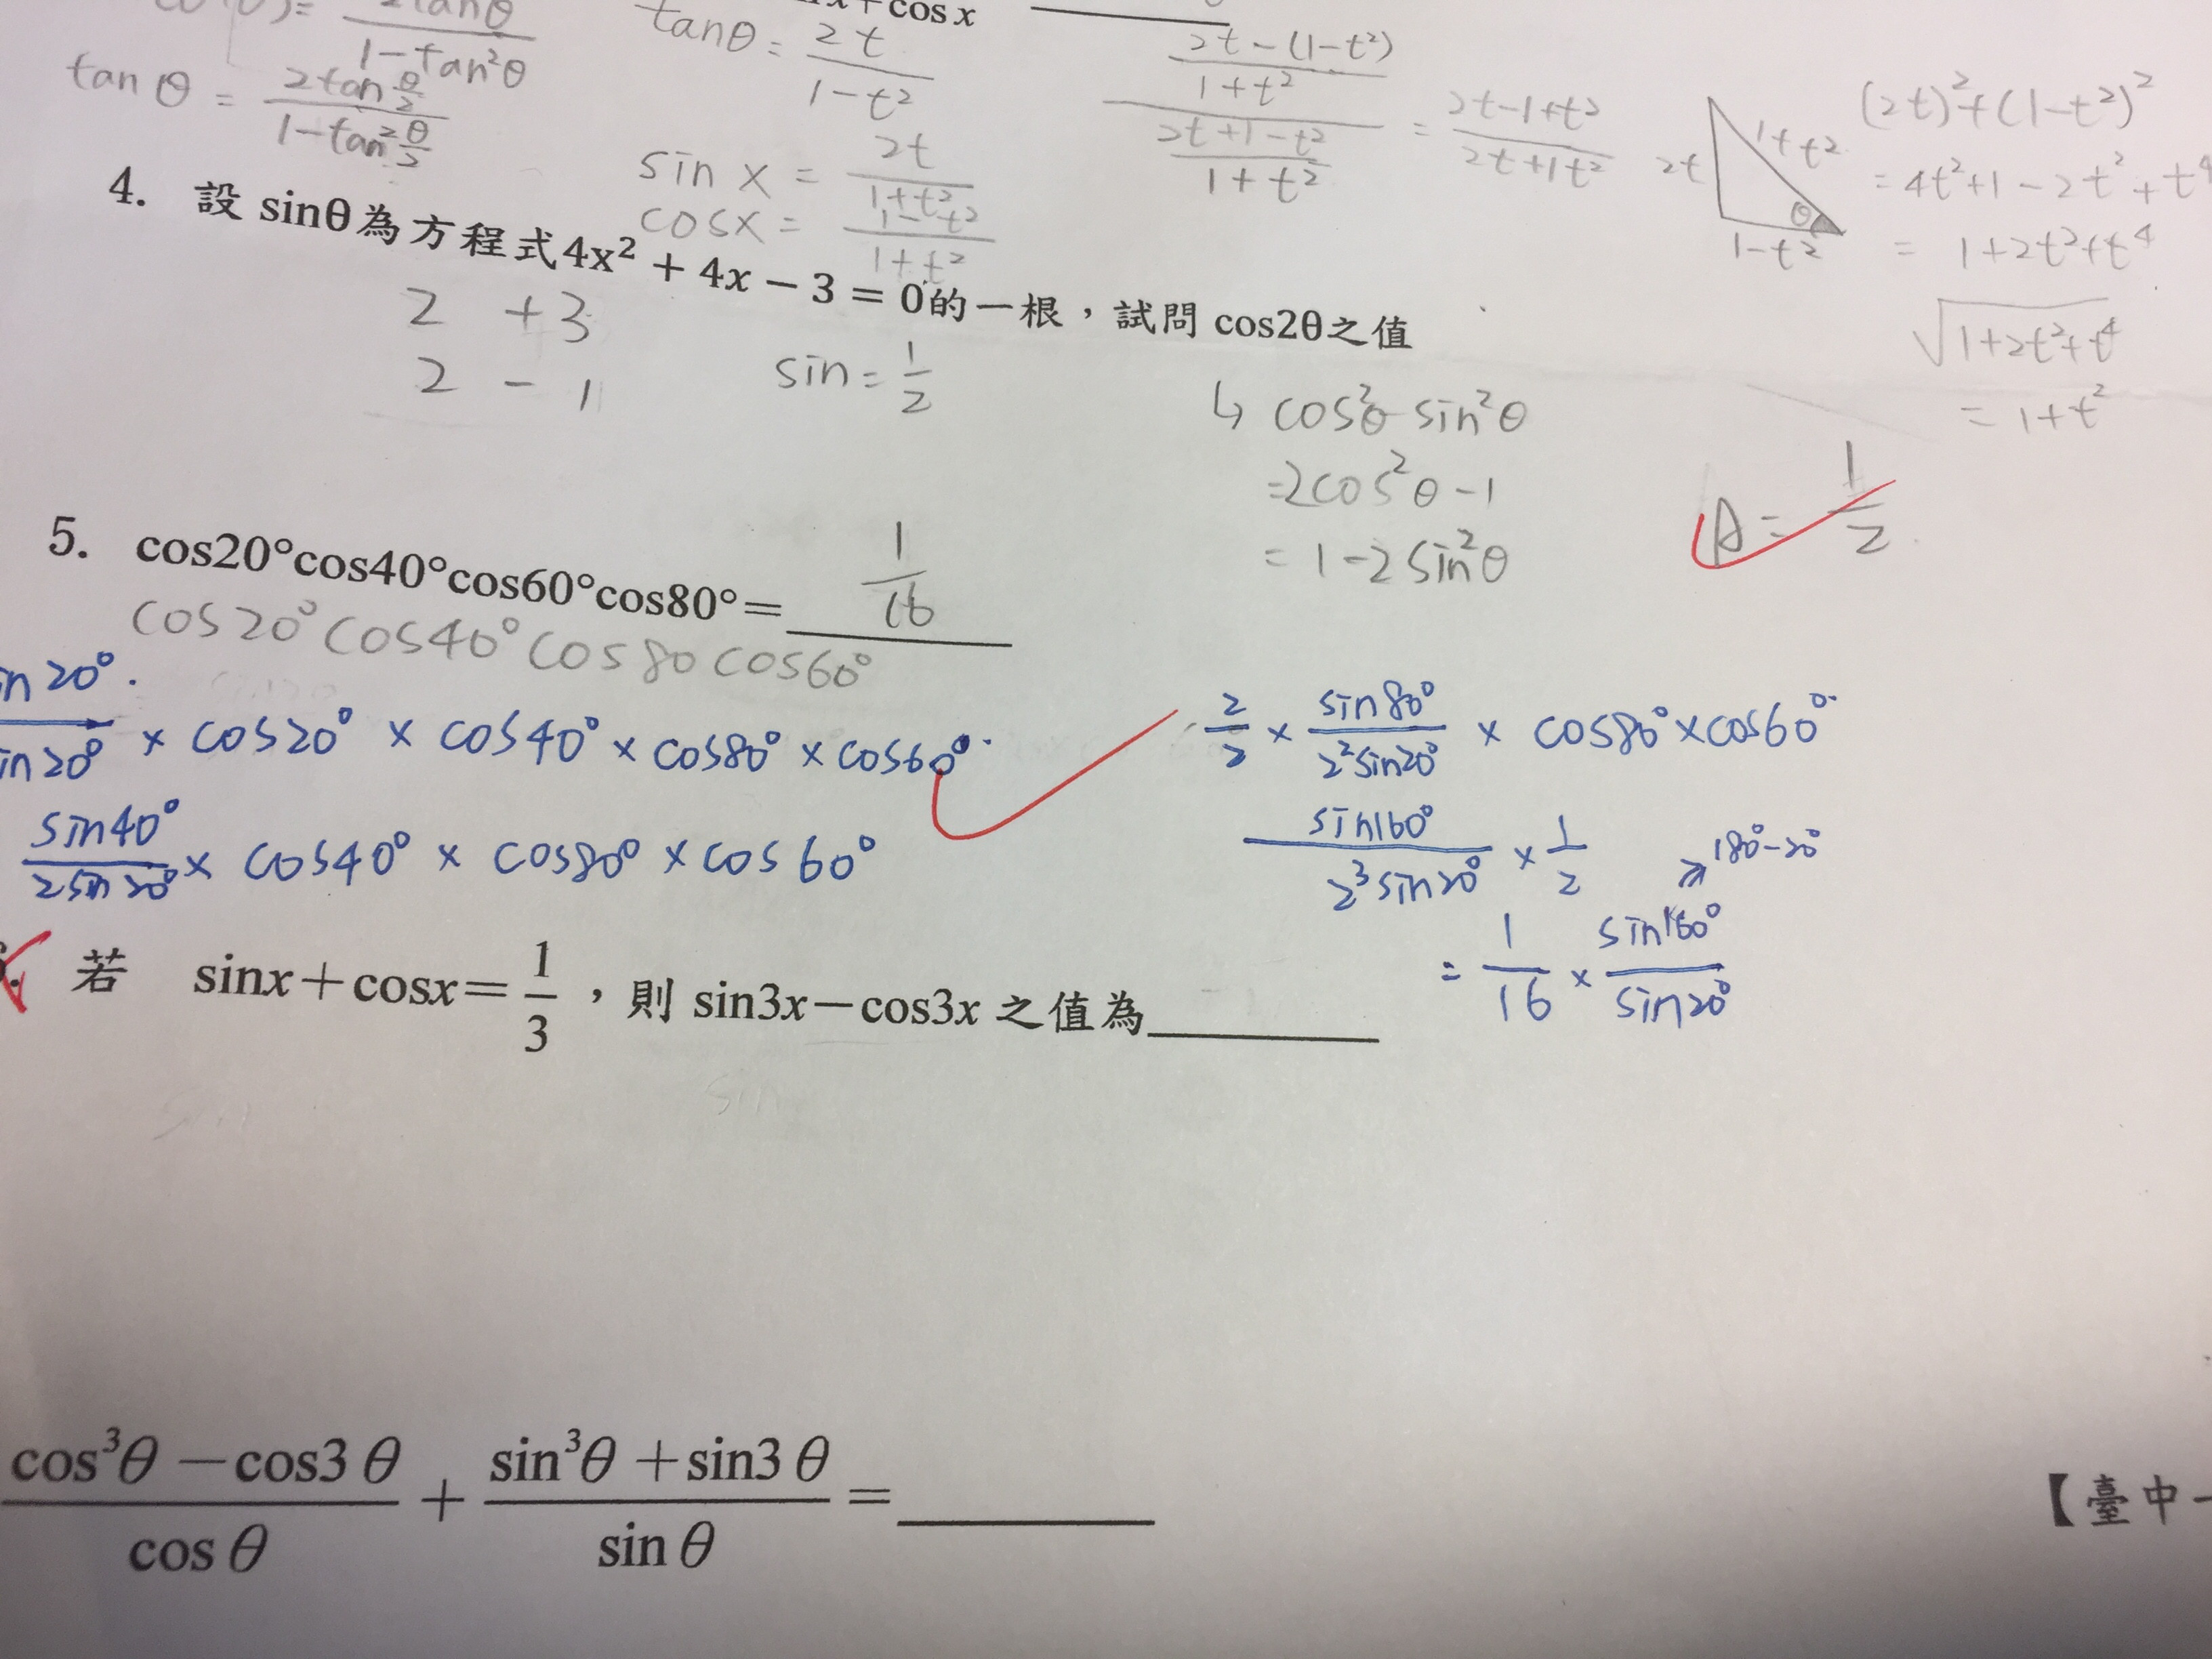 = 2tanθ / 1-tan²θ
tanθ = 2t / 1-t²
+cos x
2t-(1-t²) / 1+t²
2t+1-t² / 1+t²
= 2t-1+t² / 2t+1t²
tanθ = 2tan θ/2 / 1-tan² θ/2
sin x = 2t / 1+t²
cosx = 1-t² / 1+t²
2t
1+t²
θ
1-t²
(2t)²+(1-t²)²
= 4t²+1-2t²+t⁴
= 1+2t²+t⁴
√1+2t²+t⁴
= 1+t²
4. 設 sinθ為方程式4x² + 4x − 3 = 0的一根，試問 cos2θ之值
2 +3
2 -1
sin = 1/2
↳ cos²θ-sin²θ
=2cos²θ-1
= 1-2sin²θ
A = 1/2
5. cos20°cos40°cos60°cos80°= 1/16
cos20°cos40°cos80cos60°
in20° / in20° × cos20° × cos40° × cos80° × cos60°
sin40° / 2sin20° × cos40° × cos80° × cos60°
2/2 × sin80° / 2²sin20° × cos80° × cos60°
sin160° / 2³sin20° × 1/2
⇗ 180°-20°
= 1/16 × sin160° / sin20°
若 sinx＋cosx＝1/3，則 sin3x－cos3x 之值為
cos³θ－cos3θ / cosθ + sin³θ＋sin3θ / sinθ =
【臺中一